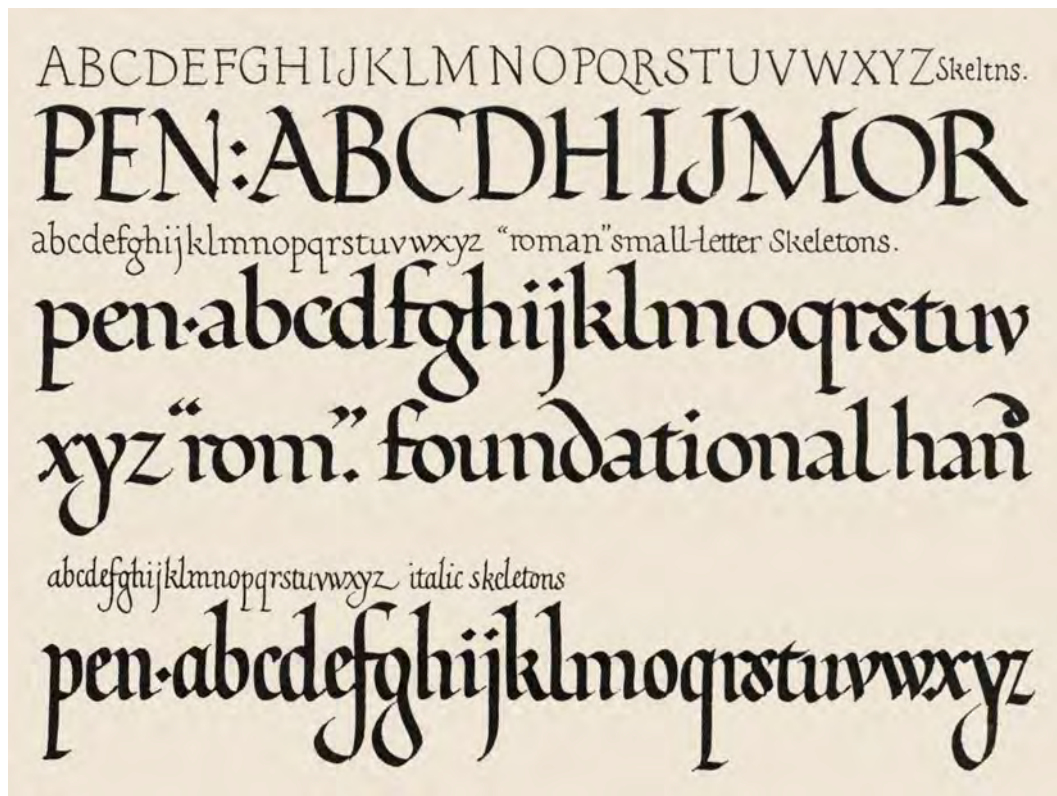 ABCDEFGHIJKLMNOPQRSTUVWXYZ Skeltns.
PEN:ABCDHIJMOR
abcdefghijklmnopqrstuvwxyz “roman” small-letter Skeletons.
pen·abcdfghijklmoqrstuv
xyz “rom”. foundational hand
abcdefghijklmnopqrstuvwxyz italic skeletons
pen·abcdefghijklmoqrstuvwxyz